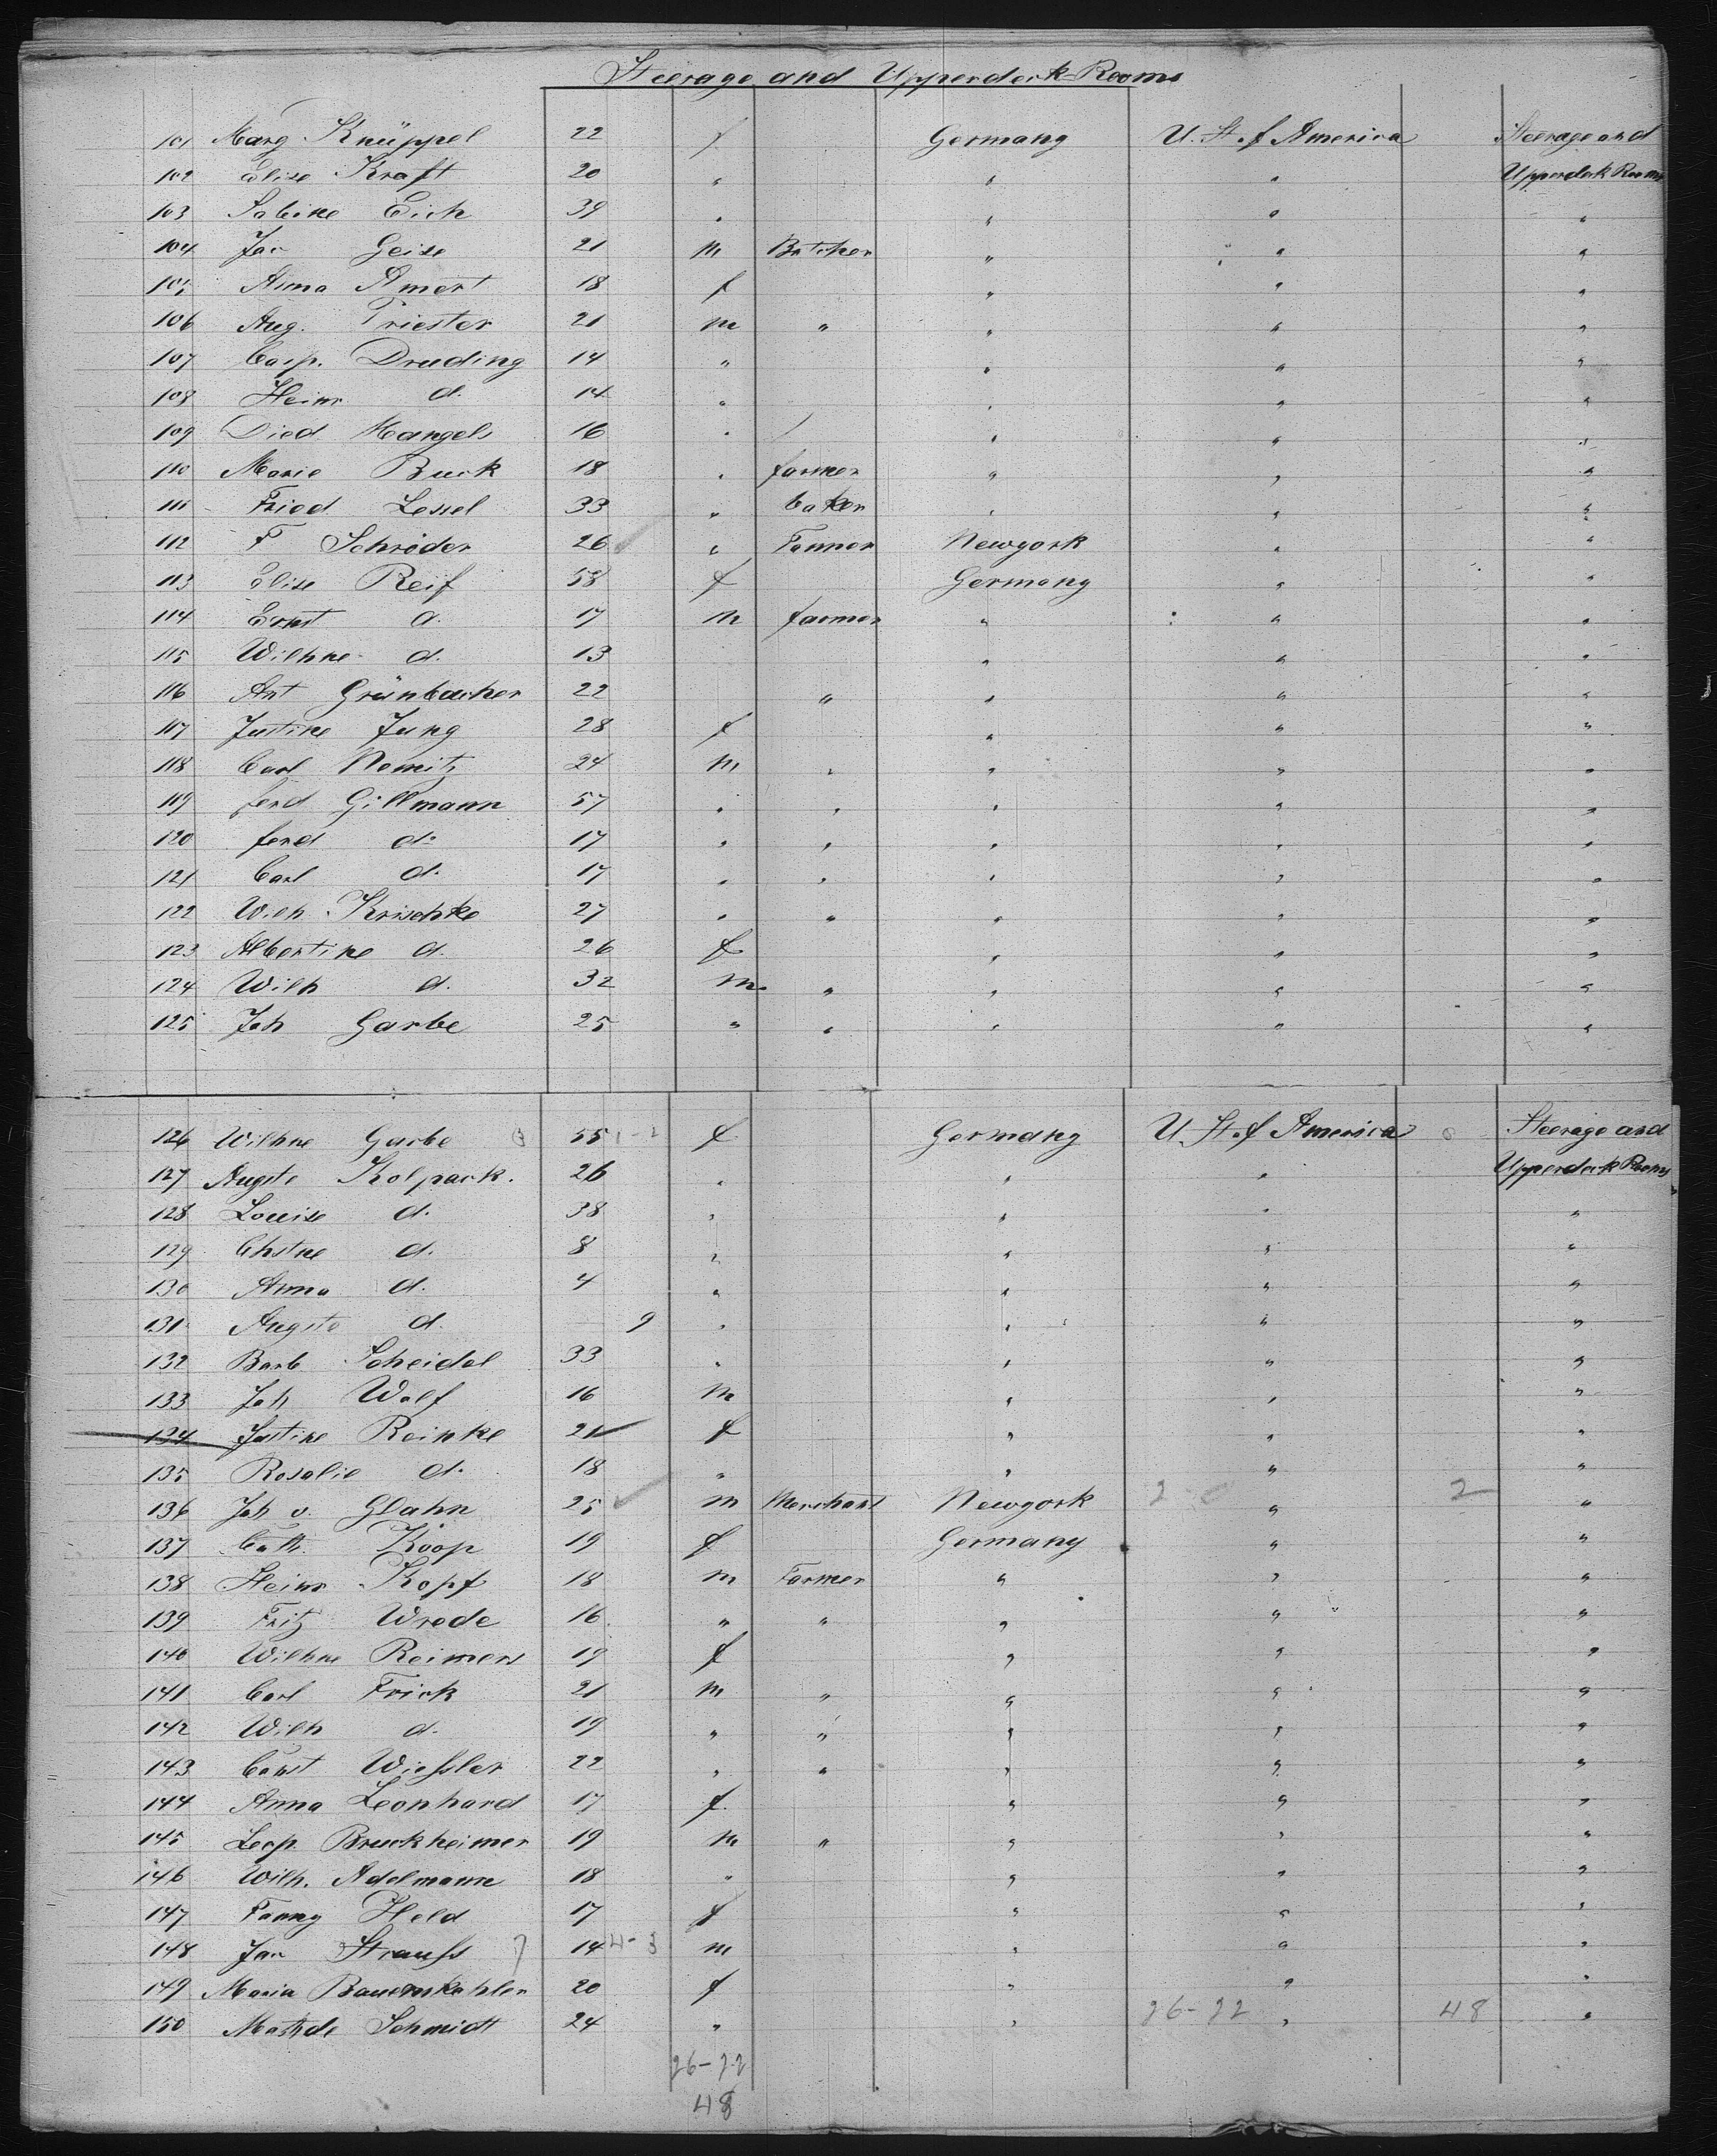 Steerage and Upperdeck Rooms
101 Marg Knüppel 22 f Germany U. St. of America Steerage and
102 Elise Kraft 20 " " " Upperdeck Rooms
103 Sabine Eich 39 " " " "
104 Jac Geise 21 m Butcher " " "
105 Anna Amert 18 f " " "
106 Aug. Priester 21 m " " " "
107 Casp. Druding 14 " " " "
108 Heinr d. 14 " " " "
109 Died Mangels 16 " / " " "
110 Marie Buck 18 " farmer " " "
111 Fried Lessel 33 " baker " " "
112 F Schröder 26 " Farmer Newyork " "
113 Elise Reif 58 f Germany " "
114 Ernst d. 17 m farmer " " "
115 Wilhne d. 13 " " "
116 Ant Grünbacher 22 " " " "
117 Justine Jung 28 f " " "
118 Carl Nemitz 24 m " " " "
119 ferd Gillmann 57 " " " " "
120 ferd d. 17 " " " " "
121 Carl d. 17 " " " " "
122 Wilh Krischke 27 " " " " "
123 Albertine d. 26 f " " "
124 Wilh d. 32 m " " " "
125 Joh Garbe 25 " " " " "
126 Wilhne Garbe 55 1-2 f Germany U. St. of America Steerage and
127 Augste Kolpack. 26 " " " Upperdeck Rooms
128 Louise d. 38 " " " "
129 Chstne d. 8 " " " "
130 Anna d. 4 " " " "
131 Augste d. 9 " " " "
132 Barb Scheidel 33 " " " "
133 Joh Wolf 16 m " " "
134 Justine Reinke 21 f " " "
135 Rosalie d. 18 " " " "
136 Joh v. Glahn 25 m Merchant Newyork 2 " 2 "
137 Cath. Koop 19 f Germany " "
138 Heinr Kopf 18 m Farmer " " "
139 Fritz Wrede 16 " " " " "
140 Wilhne Reimers 19 f " " "
141 Carl Frick 21 m " " " "
142 Wilh d. 19 " " " " "
143 Const Wiessler 22 " " " " "
144 Anna Leonhard 17 f. " " "
145 Leop. Bruckheimer 19 m " " " "
146 Wilh. Adelmann 18 " " " "
147 Fanny Held 17 f " " "
148 Jac Strauss 14 4-3 m " " "
149 Maria Bauernkohler 20 f " " "
150 Mathde Schmidt 24 " " 26-22 " 48 "
26-22
48